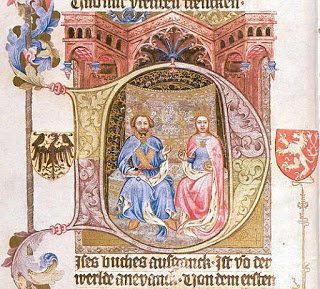 mit vreuden trencken.
Dises buches ausganck. Ist vo der
werlde anevanck. Von dem ersten